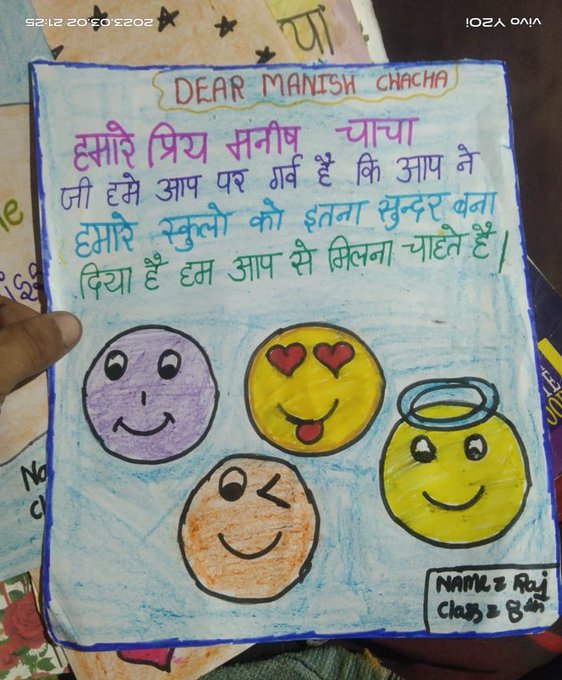 vivo Y20i
2023.03.02 21:25
यों
DEAR MANISH CHACHA
हमारे प्रिय मनीष चाचा
जी हमे आप पर गर्व है कि आप ने
हमारे स्कुलो को इतना सुन्दर बना
दिया है हम आप से मिलना चाहते है।
NAME = Raj
Class = 8th